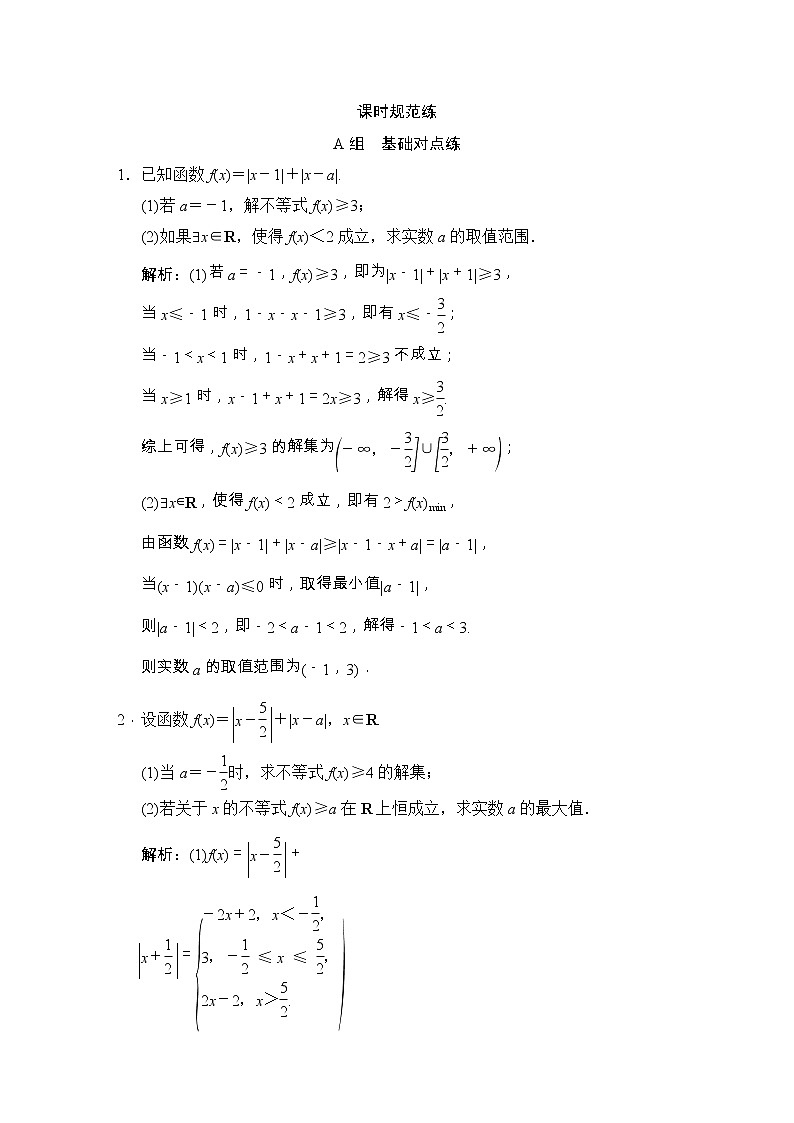 课时规范练
A组　基础对点练
1．已知函数f(x)＝|x－1|＋|x－a|.
(1)若a＝－1，解不等式f(x)≥3；
(2)如果∃x∈R，使得f(x)＜2成立，求实数a的取值范围．
解析：(1)若a＝－1，f(x)≥3，即为|x－1|＋|x＋1|≥3，
当x≤－1时，1－x－x－1≥3，即有x≤－3/2；
当－1＜x＜1时，1－x＋x＋1＝2≥3不成立；
当x≥1时，x－1＋x＋1＝2x≥3，解得x≥3/2.
综上可得，f(x)≥3的解集为(－∞，－3/2]∪[3/2，＋∞)；
(2)∃x∈R，使得f(x)＜2成立，即有2＞f(x)min，
由函数f(x)＝|x－1|＋|x－a|≥|x－1－x＋a|＝|a－1|，
当(x－1)(x－a)≤0时，取得最小值|a－1|，
则|a－1|＜2，即－2＜a－1＜2，解得－1＜a＜3.
则实数a的取值范围为(－1，3)．
2．设函数f(x)＝|x－5/2|＋|x－a|，x∈R.
(1)当a＝－1/2时，求不等式f(x)≥4的解集；
(2)若关于x的不等式f(x)≥a在R上恒成立，求实数a的最大值．
解析：(1)f(x)＝|x－5/2|＋
|x＋1/2|＝{－2x＋2，x＜－1/2，
3，－1/2 ≤ x ≤ 5/2，
2x－2，x＞5/2.)